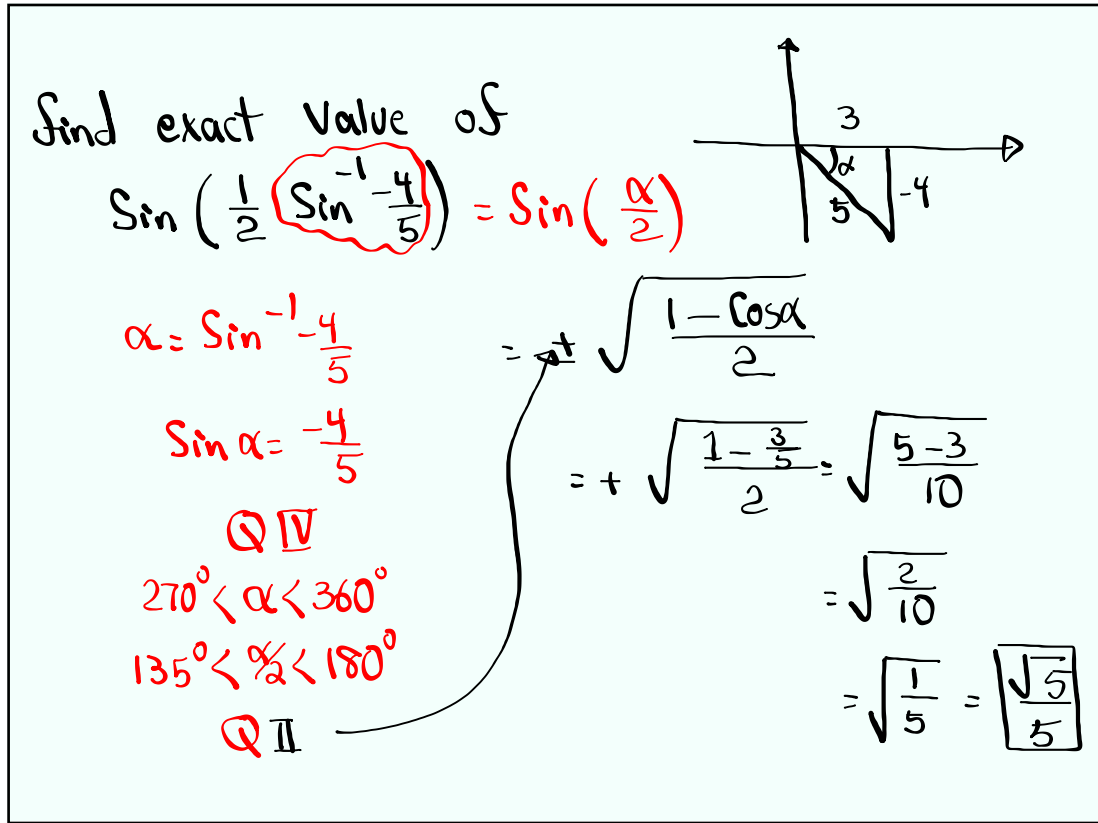 find exact Value of
Sin ( 1/2 Sin⁻¹ -4/5 ) = Sin( α/2 )
3
α
5
-4
α = Sin⁻¹ -4/5
Sin α = -4/5
Q IV
270° < α < 360°
135° < α/2 < 180°
Q II
= ± √((1 - Cosα)/2)
= + √((1 - 3/5)/2) = √((5-3)/10)
= √(2/10)
= √(1/5) = √5/5